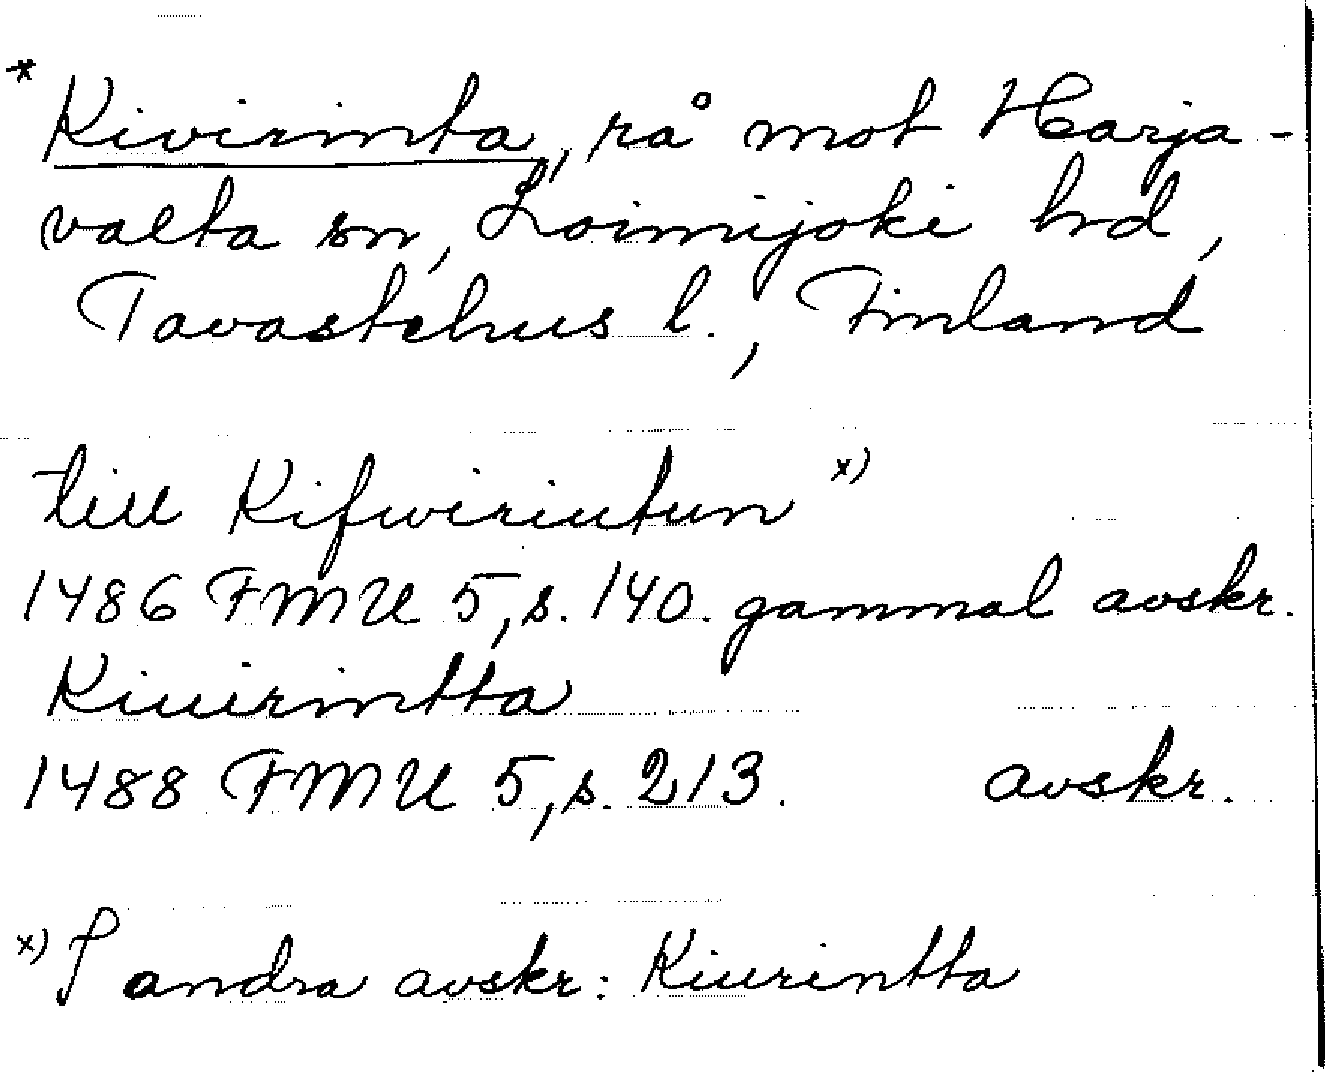 * Kivirinta, rå mot Harja-
valta sn, Loimijoki hrd,
Tavastehus l., Finland
till Kifwiriutun x)
1486 FMU 5, s. 140. gammal avskr.
Kiuirintta
1488 FMU 5, s. 213. avskr.
x) I andra avskr: Kiurintta